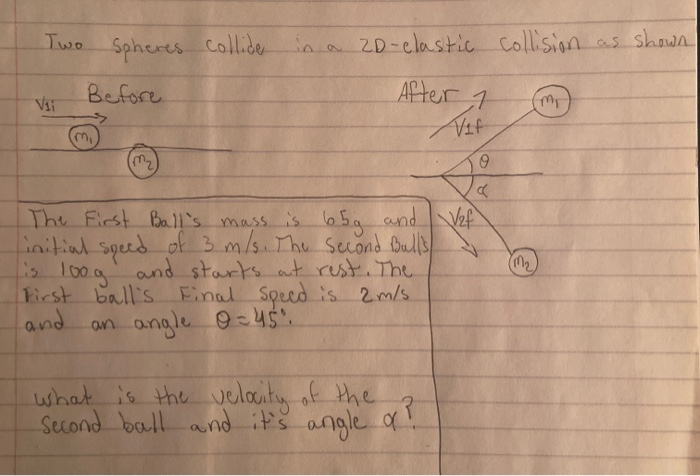 Two Spheres collide in a 2D-elastic collision as shown
Before
V1i
m1
m2
After
m1
V1f
θ
α
V2f
m2
The First Ball's mass is 65g and
initial speed of 3 m/s. The Second Ball's
is 100g and starts at rest. The
First ball's Final Speed is 2m/s
and an angle θ=45°.
what is the velocity of the
Second ball and it's angle α?